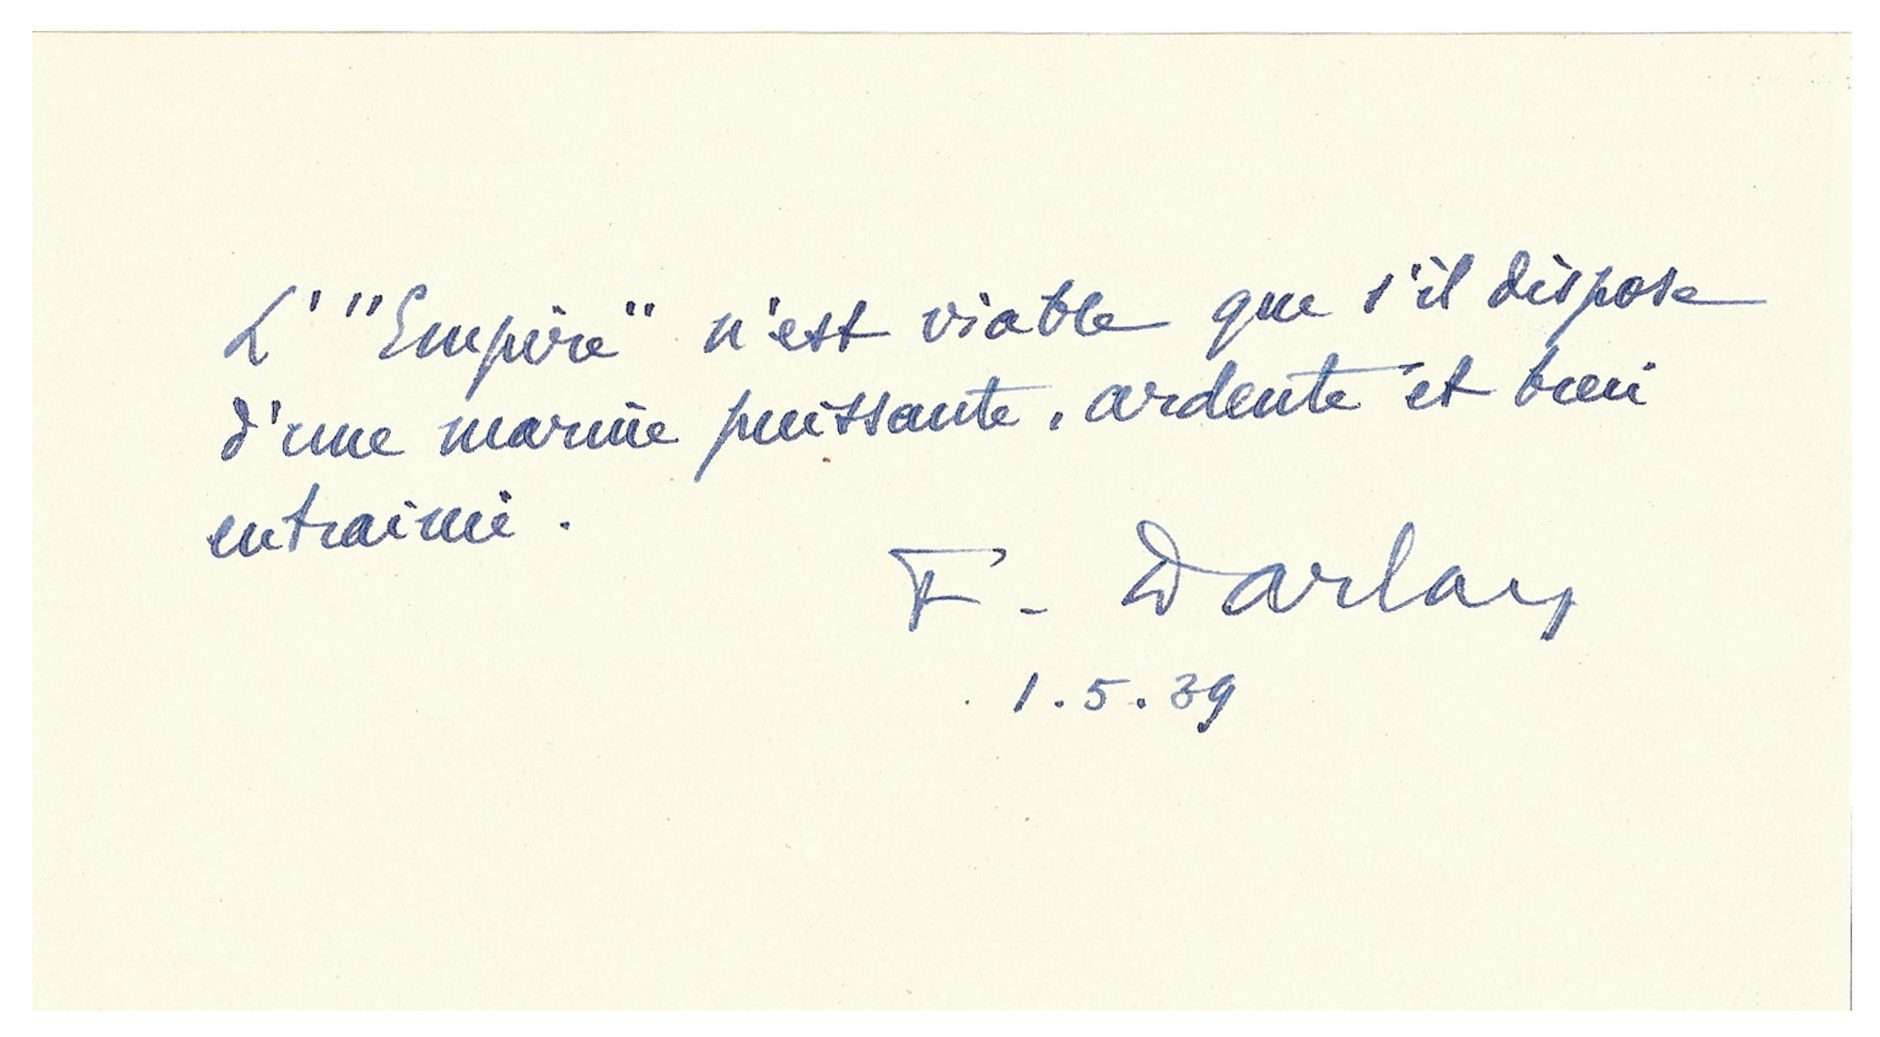 L' "Empire" n'est viable que s'il dispose
d'une marine puissante, ardente et bien
entrainée.
F. Darlan
1.5.39